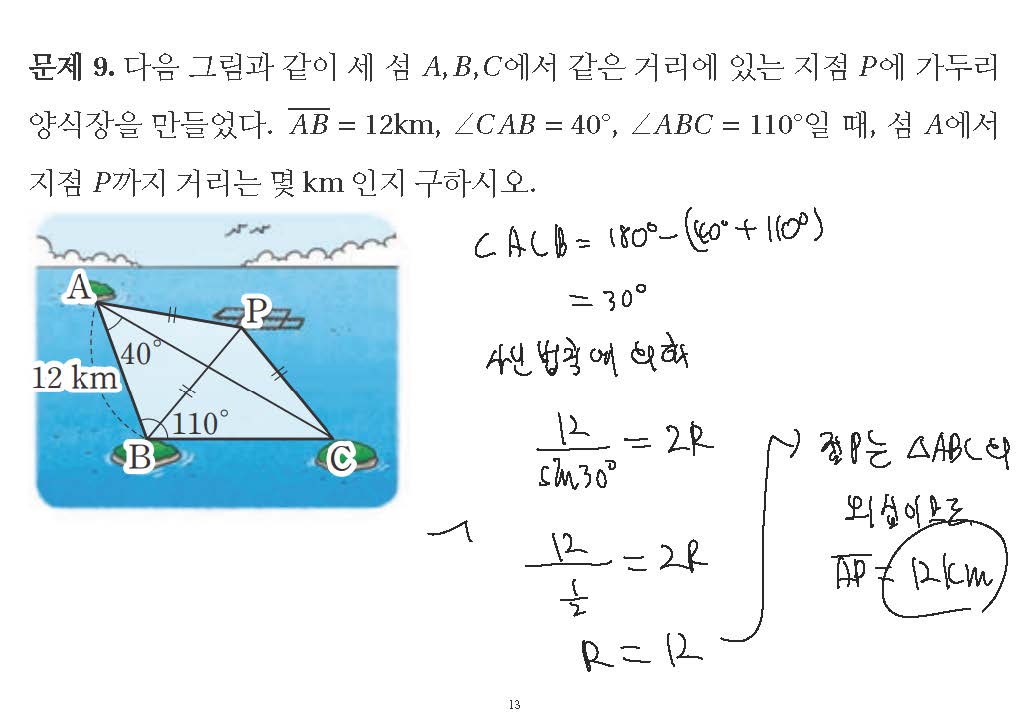 문제 9. 다음 그림과 같이 세 섬 A, B, C에서 같은 거리에 있는 지점 P에 가두리
양식장을 만들었다. \overline{AB} = 12km, ∠CAB = 40°, ∠ABC = 110°일 때, 섬 A에서
지점 P까지 거리는 몇 km 인지 구하시오.
A
P
40°
12 km
110°
B
C
∠ACB = 180° - (40° + 110°)
= 30°
사인법칙에 의해
12/sin30° = 2R
12/(1/2) = 2R
R = 12
점P는 △ABC의
외심이므로
\overline{AP} = 12km
13